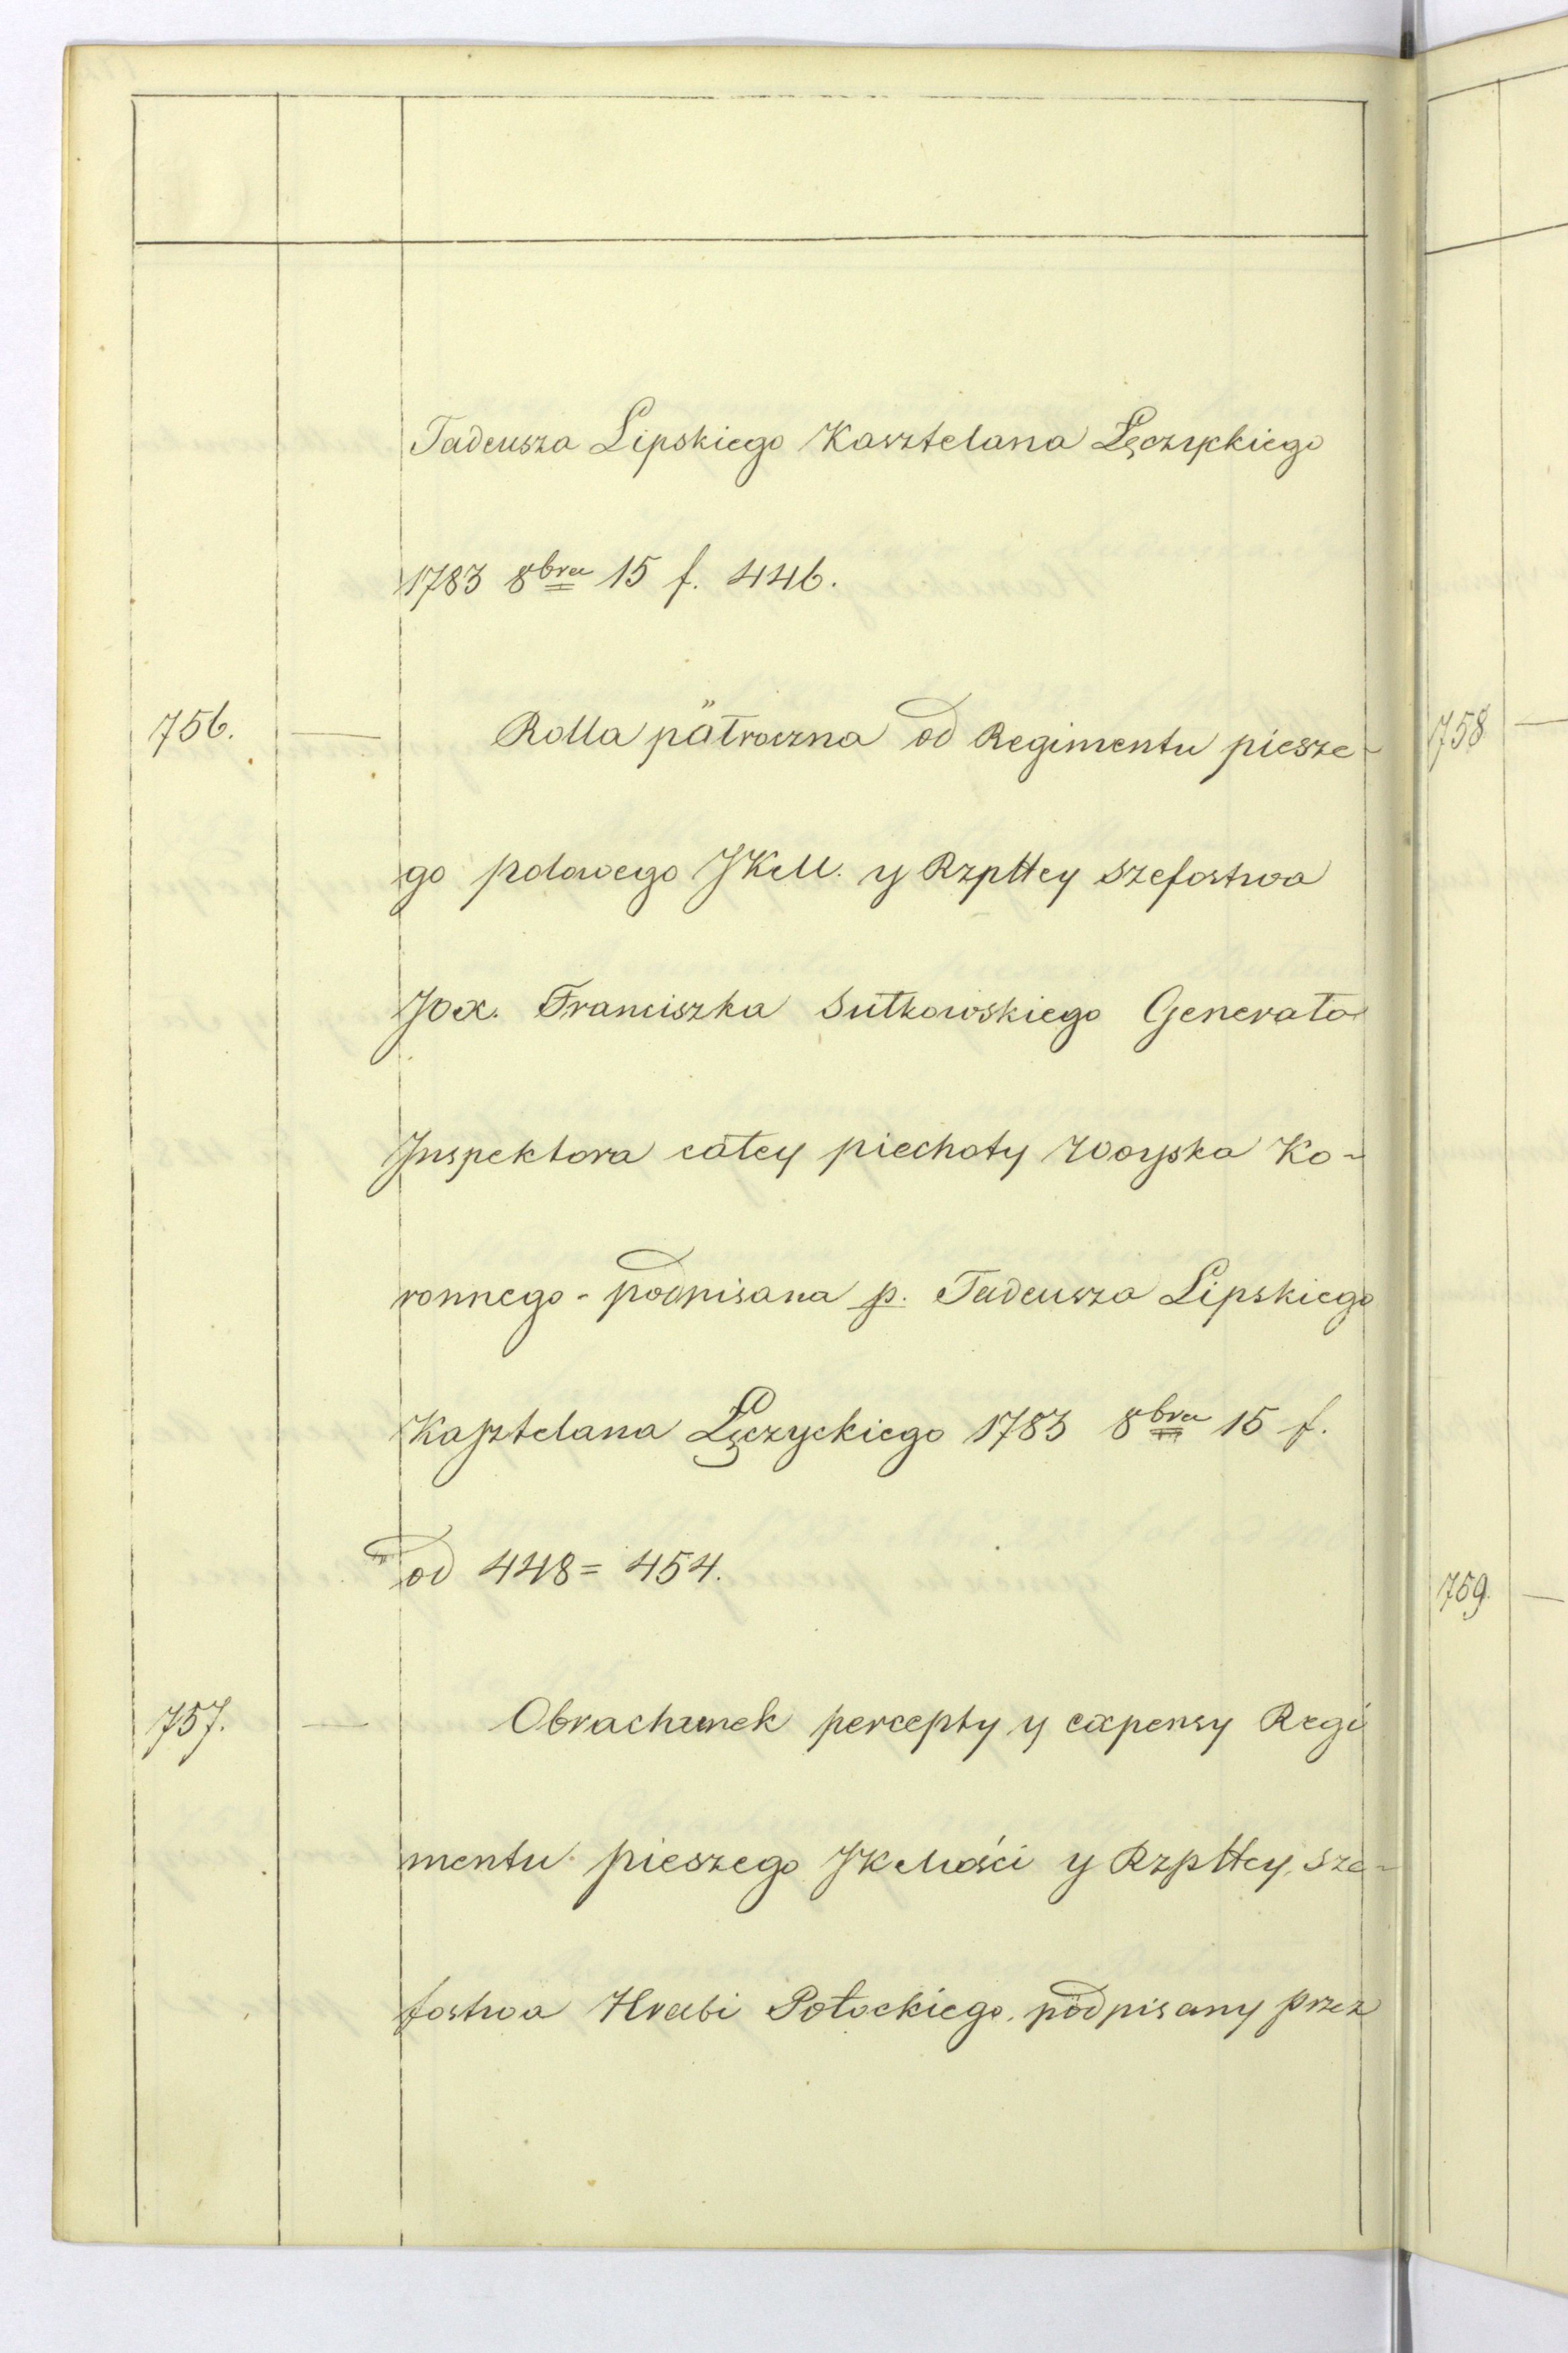 Tadeusza Lipskiego Kasztelana Łęczyckiego
1783 8bra 15 f. 446.
756. — Rolla półroczna od Regimentu piesze-
go polowego JKM. y Rzpltey szefostwa
JOX. Franciszka Sułkowskiego Generała
Inspektora całey piechoty Woyska Ko-
ronnego - podpisana p. Tadeusza Lipskiego
Kasztelana Łęczyckiego 1783 8bra 15 f.
od 448 = 454.
757. — Obrachunek percepty y expensy Regi
mentu pieszego JKMości y Rzpltey sze-
fostwa Hrabi Potockiego podpisany przez
758 —
759. —